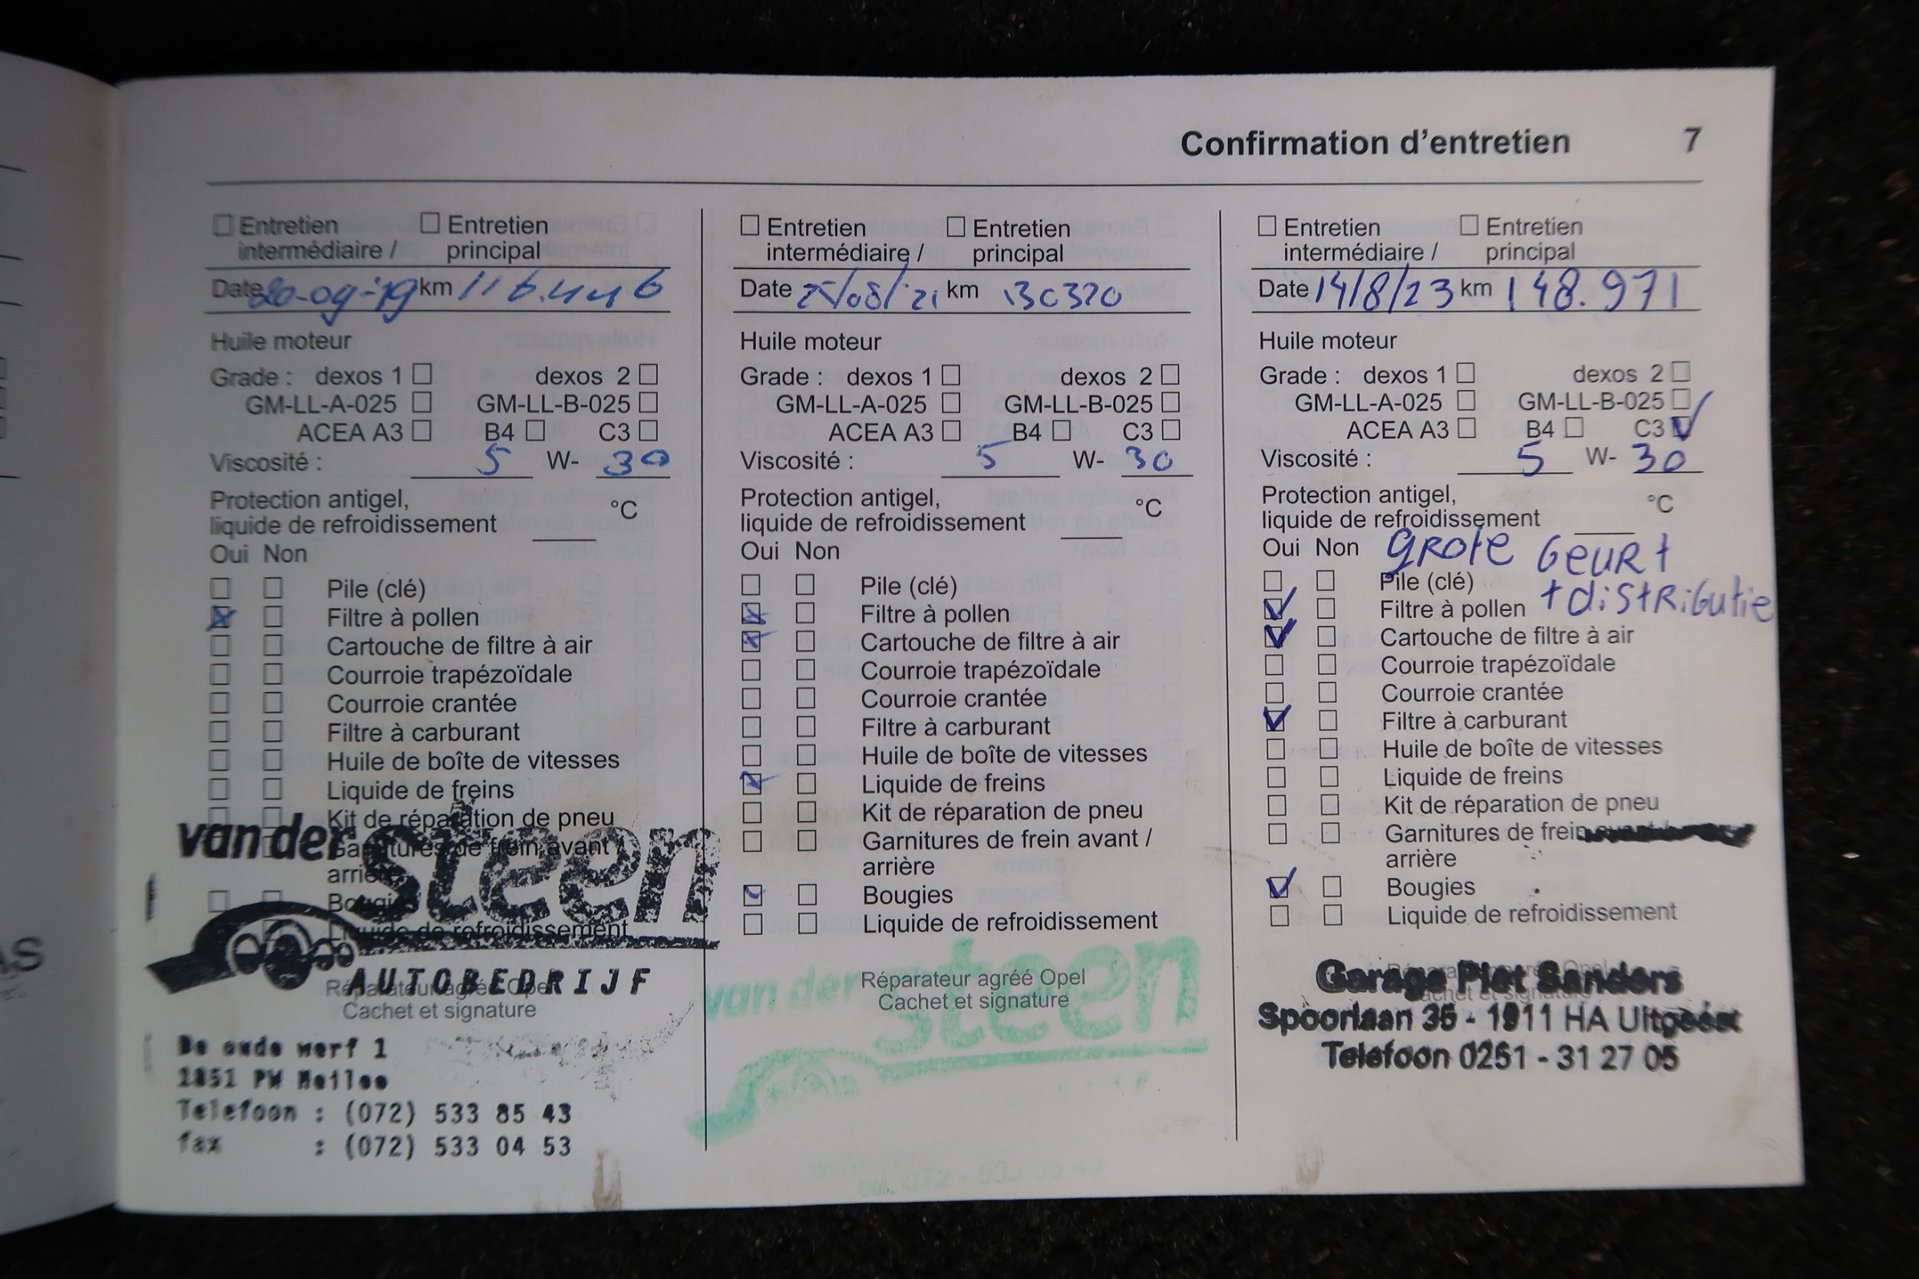 Confirmation d'entretien 7
Entretien intermédiaire /
Entretien principal
Date 20-09-'19 km 116.446
Huile moteur
Grade : dexos 1 dexos 2
GM-LL-A-025 GM-LL-B-025
ACEA A3 B4 C3
Viscosité : 5 W- 30
Protection antigel,
liquide de refroidissement °C
Oui Non
Pile (clé)
Filtre à pollen
Cartouche de filtre à air
Courroie trapézoïdale
Courroie crantée
Filtre à carburant
Huile de boîte de vitesses
Liquide de freins
Kit de réparation de pneu
Garnitures de frein avant /
arrière
Bougies
Liquide de refroidissement
van der steen
AUTOBEDRIJF
Réparateur agréé Opel
Cachet et signature
De oude werf 1
1851 PW Heiloo
Telefoon : (072) 533 85 43
fax : (072) 533 04 53
Entretien intermédiaire /
Entretien principal
Date 25/08/'21 km 130320
Huile moteur
Grade : dexos 1 dexos 2
GM-LL-A-025 GM-LL-B-025
ACEA A3 B4 C3
Viscosité : 5 W- 30
Protection antigel,
liquide de refroidissement °C
Oui Non
Pile (clé)
Filtre à pollen
Cartouche de filtre à air
Courroie trapézoïdale
Courroie crantée
Filtre à carburant
Huile de boîte de vitesses
Liquide de freins
Kit de réparation de pneu
Garnitures de frein avant /
arrière
Bougies
Liquide de refroidissement
van der steen
Réparateur agréé Opel
Cachet et signature
tel. 072 - 533 85 43
Entretien intermédiaire /
Entretien principal
Date 14/8/23 km 148.971
Huile moteur
Grade : dexos 1 dexos 2
GM-LL-A-025 GM-LL-B-025
ACEA A3 B4 C3
Viscosité : 5 W- 30
Protection antigel,
liquide de refroidissement °C
Oui Non grote beurt
Pile (clé) + distributie
Filtre à pollen
Cartouche de filtre à air
Courroie trapézoïdale
Courroie crantée
Filtre à carburant
Huile de boîte de vitesses
Liquide de freins
Kit de réparation de pneu
Garnitures de frein
arrière
Bougies
Liquide de refroidissement
Garage Piet Sanders
Cachet et signature
Spoorlaan 35 - 1911 HA Uitgeest
Telefoon 0251 - 31 27 05